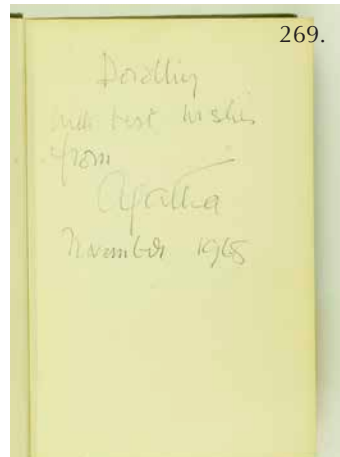 269.
Dorothy
with best wishes
from
Agatha
November 1965